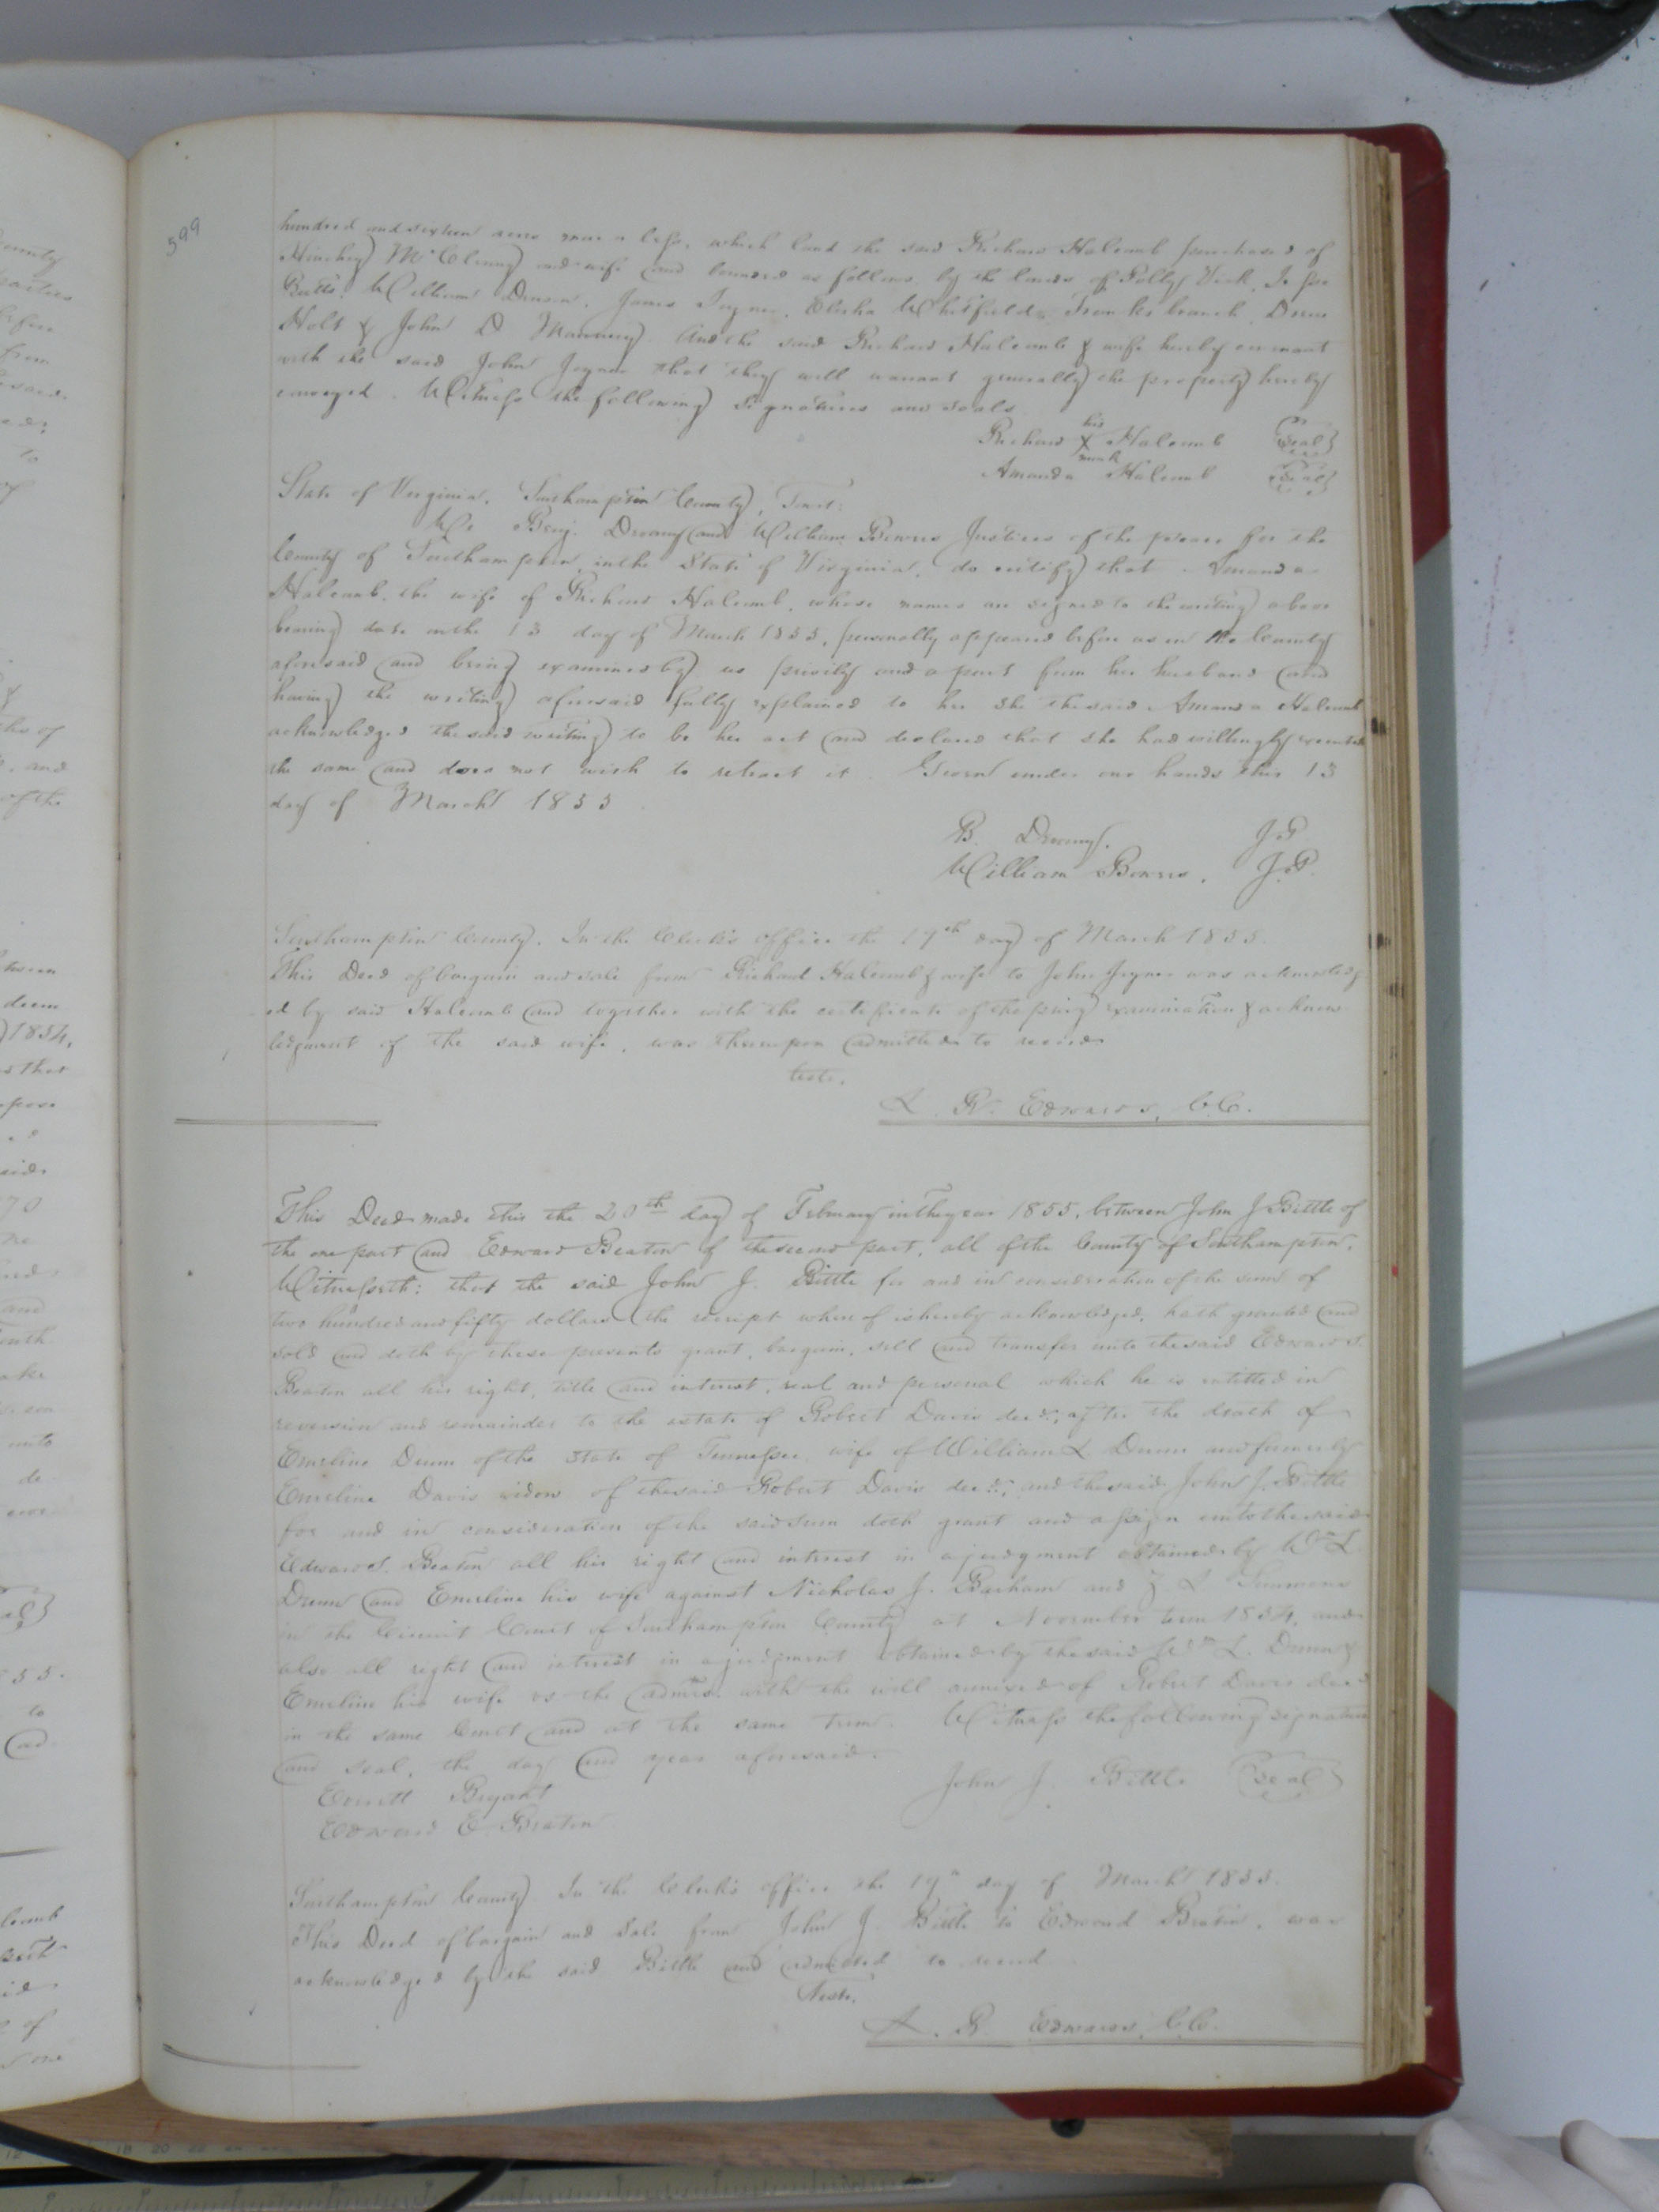 599
hundred and sixteen acres more or less, which land the said Richard Halcomb purchased of
Hinchey McClenny and wife and bounded as follows by the lands of Polly Vick, Jesse
Butts, William Denson, James Joyner, Elisha Whitfield, branch,
Holt & John D Mammery. And the said Richard Halcomb & wife hereby covenant
with the said John Joyner that they will warrant generally the property hereby
conveyed. Witness the following signatures and seals
Richard his X mark Halcomb {Seal}
Amanda Halcomb {Seal}
State of Virginia, Southampton County, Towit:
We Benj. Drewry and William Bowers Justices of the peace for the
County of Southampton, in the State of Virginia, do certify that Amanda
Halcomb, the wife of Richard Halcomb, whose names are signed to the writing above
bearing date on the 13 day of March 1855, personally appeared before us in the County
aforesaid and being examined by us privily and apart from her husband and
having the writing aforesaid fully explained to her she the said Amanda Halcomb
acknowledged the said writing to be her act and declared that she had willingly executed
the same and does not wish to retract it. Given under our hands this 13
day of March 1855
B. Drewry. J.P
William Bowers. J.P.
Southampton County. In the Clerk's office the 19th day of March 1855.
This Deed of bargain and sale from Richard Halcomb & wife to John Joyner was acknowledg
ed by said Halcomb and together with the certificate of the privy examination & acknow
ledgment of the said wife, was thereupon admitted to record
teste.
L. R. Edwards, C.C.
This Deed made this the 20th day of February in the year 1855, between John J Bittle of
the one part and Edward Beaton of the second part, all of the County of Southampton,
Witnesseth: that the said John J. Bittle for and in consideration of the sum of
two hundred and fifty dollars (the receipt whereof is hereby acknowledged, hath granted and
sold and doth by these presents grant, bargain, sell and transfer unto the said Edward
Beaton all his right, title and interest, real and personal which he is entitled in
reversion and remainder to the estate of Robert Davis decd., after the death of
Emeline Dunn of the State of Tennessee, wife of William L Dunn and formerly
Emeline Davis widow of the said Robert Davis decd., and the said John J. Bittle
for and in consideration of the said sum doth grant and assign unto the said
Edward Beaton all his right and interest in a judgment obtained by Wm L.
Dunn and Emeline his wife against Nicholas J. Barham and L Simmons
in the Circuit Court of Southampton County at November term 1854, and
also all right and interest in a judgment obtained by the said Wm L. Dunn &
Emeline his wife vs the admr. with the will annexed of Robert Davis decd
in the same Court and at the same term. Witness the following signature
and seal, the day and year aforesaid.
John J. Bittle {Seal}
Everitt Bryant
Edward E Beaton
Southampton County. In the Clerk's office the 19th day of March 1855.
This Deed of bargain and sale from John J. Bittle to Edward Beaton, was
acknowledged by the said Bittle and admitted to record
Teste.
L. R. Edwards, C.C.